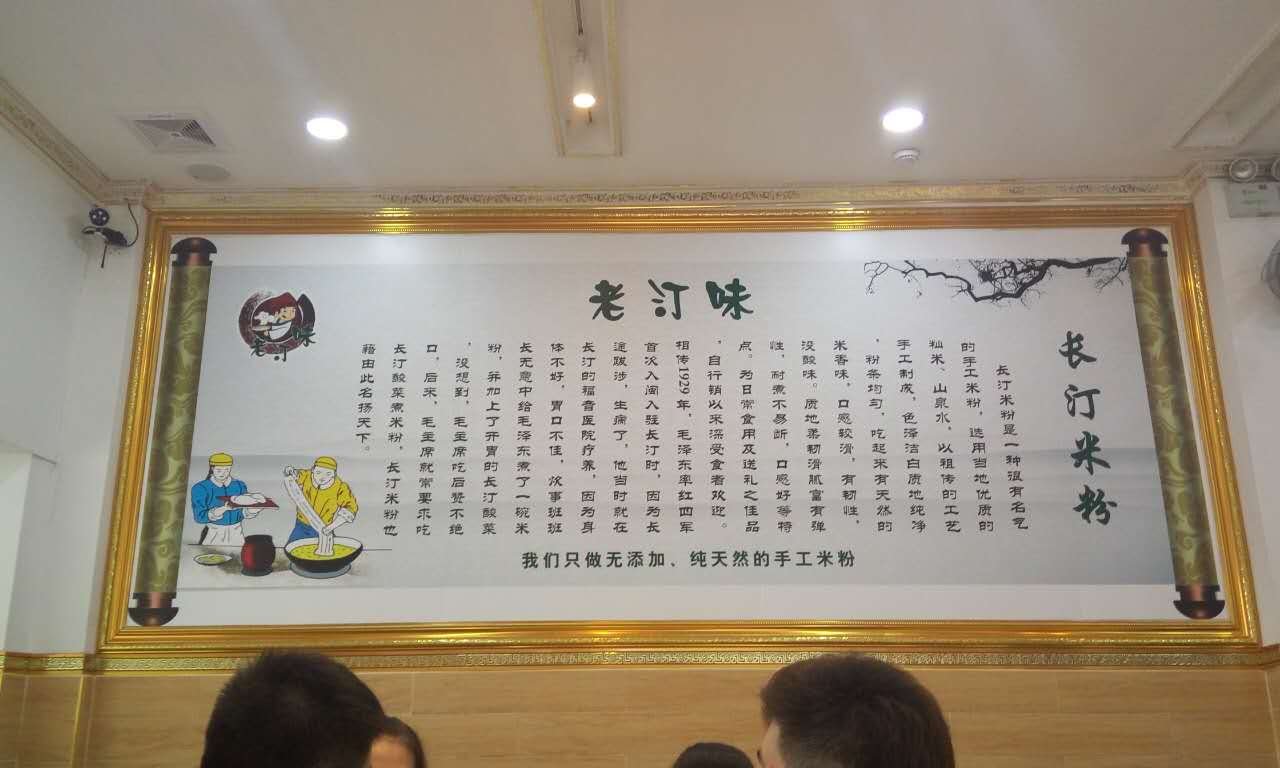 老汀味
长汀米粉
长汀米粉是一种很有名气
的手工米粉，选用当地优质的
籼米、山泉水，以祖传的工艺
手工制成，色泽洁白质地纯净
，粉条均匀，吃起来有天然的
米香味，口感较滑，有韧性，
没酸味。质地柔韧滑腻富有弹
性，耐煮不易断，口感好等特
点。为日常食用及送礼之佳品
，自行销以来深受食者欢迎。
相传1929年，毛泽东率红四军
首次入闽入驻长汀时，因为长
途跋涉，生病了，他当时就在
长汀的福音医院疗养，因为身
体不好，胃口不佳，炊事班班
长无意中给毛泽东煮了一碗米
粉，并加上了开胃的长汀酸菜
，没想到，毛主席吃后赞不绝
口，后来，毛主席就常要求吃
长汀酸菜煮米粉，长汀米粉也
藉由此名扬天下。
老汀味
我们只做无添加、纯天然的手工米粉